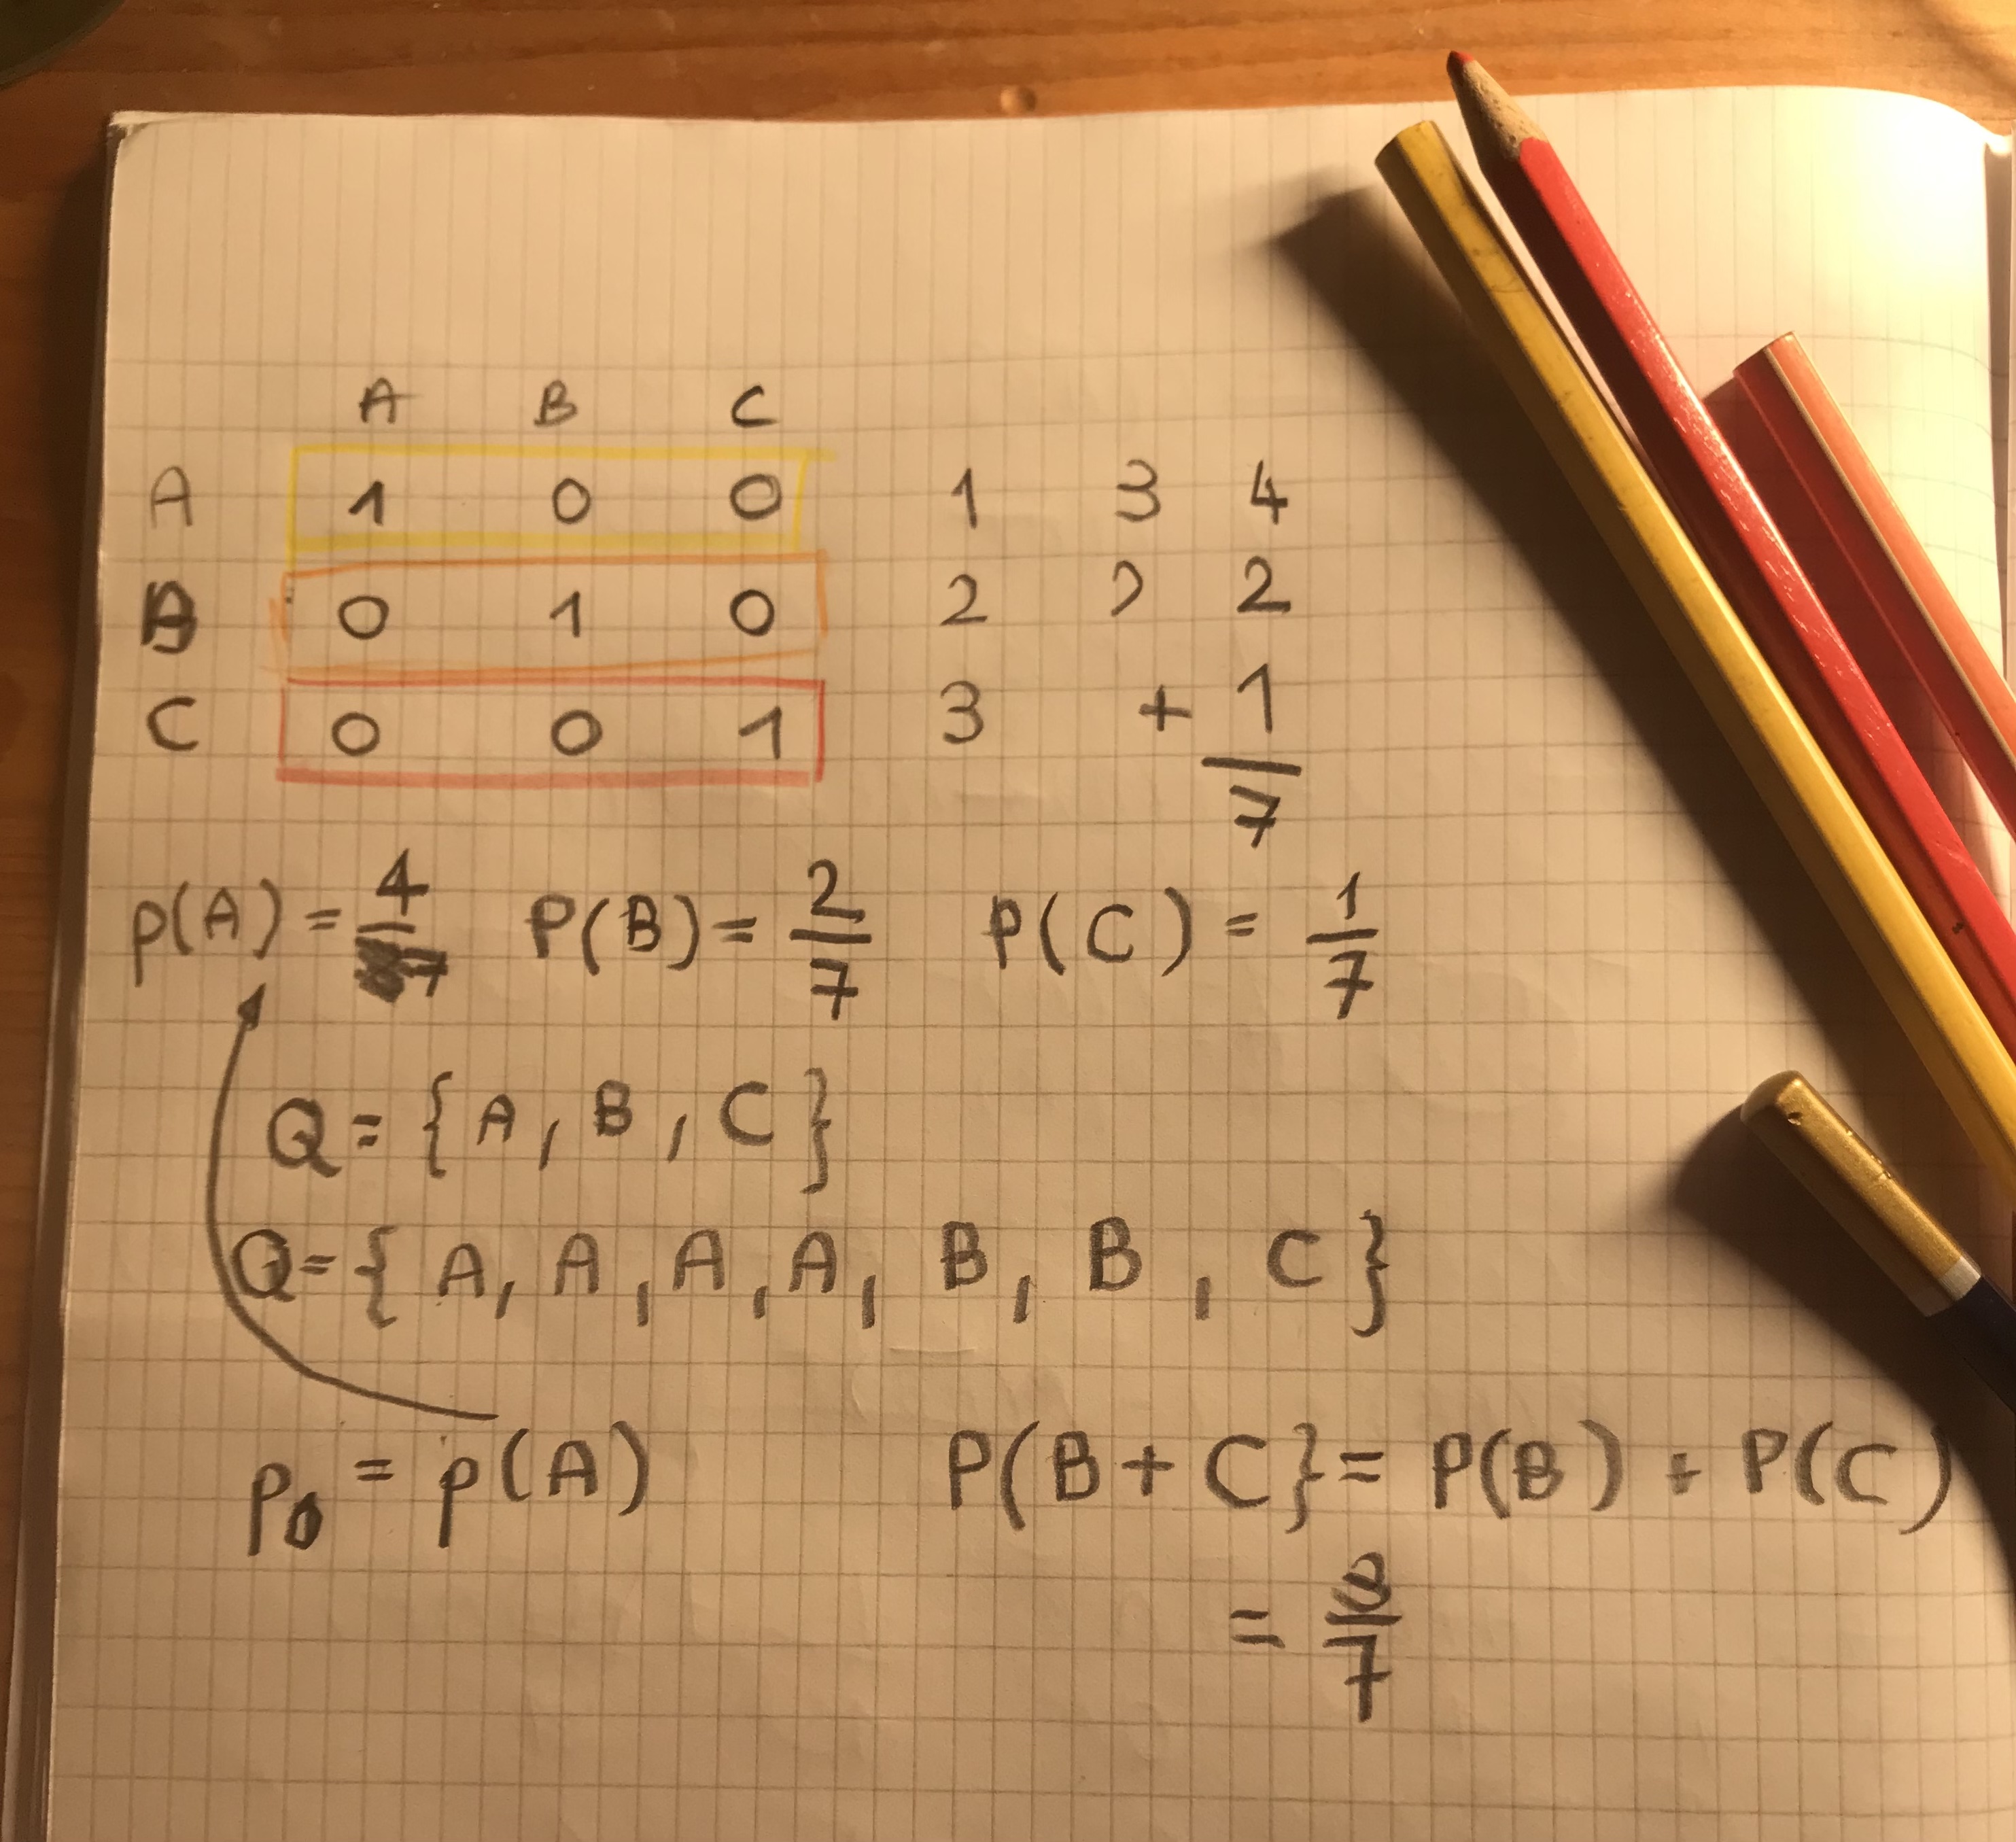 A B C
A 1 0 0 1 3 4
B 0 1 0 2 2 2
C 0 0 1 3 + 1
7
p(A) = 4/7 P(B) = 2/7 P(C) = 1/7
Q = { A, B, C }
Q = { A, A, A, A, B, B, C }
p0 = p(A) P(B + C} = P(B) + P(C)
= 3/7